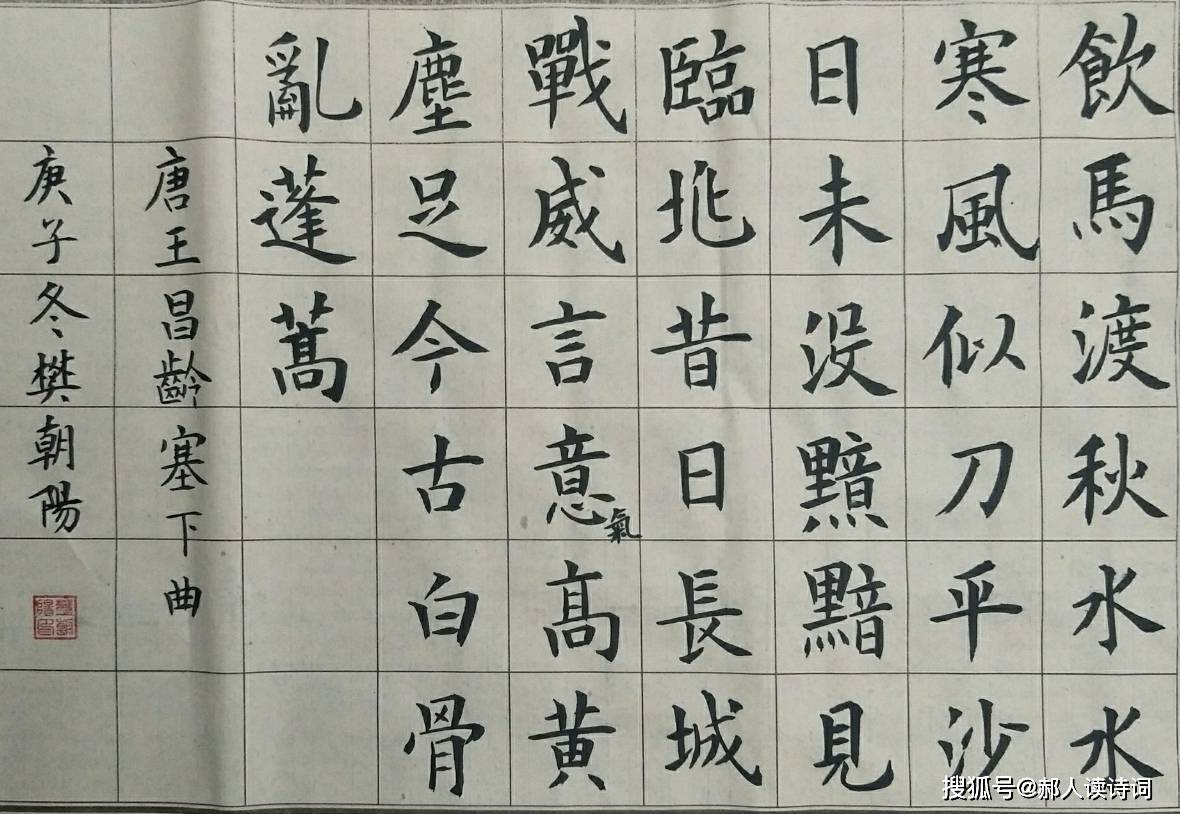 飲馬渡秋水水
寒風似刀平沙
日未沒黯黯見
臨洮昔日長城
戰威言意氣高黃
塵足今古白骨
亂蓬蒿
唐王昌齡塞下曲
庚子冬樊朝陽
搜狐号@郝人读诗词